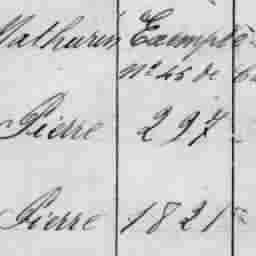 Mathurin Exempté
Nº 45 de
Pierre 297
Pierre 1821